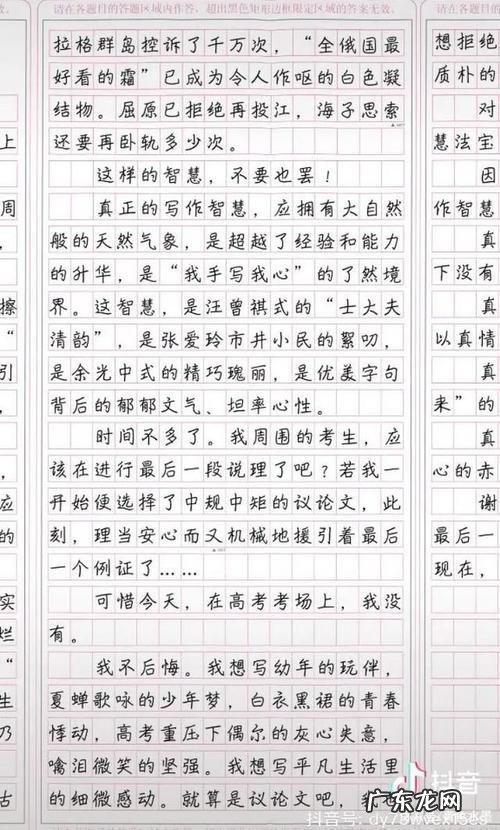 请在各题目的答题区域内作答，超出黑色矩形边框限定区域的答案无效。
拉格群岛控诉了千万次，“全俄国最
好看的霜”已成为令人作呕的白色凝
结物。屈原已拒绝再投江，海子思索
还要再卧轨多少次。
这样的智慧，不要也罢！
真正的写作智慧，应拥有大自然
般的天然气象，是超越了经验和能力
的升华，是“我手写我心”的了然境
界。这智慧，是汪曾祺式的“士大夫
清韵”，是张爱玲市井小民的絮叨，
是余光中式的精巧瑰丽，是优美字句
背后的郁郁文气、坦率心性。
时间不多了。我周围的考生，应
该在进行最后一段说理了吧？若我一
开始便选择了中规中矩的议论文，此
刻，理当安心而又机械地援引着最后
一个例证了……
可惜今天，在高考考场上，我没
有。
我不后悔。我想写幼年的玩伴，
夏蝉歌咏的少年梦，白衣黑裙的青春
悸动，高考重压下偶尔的灰心失意，
噙泪微笑的坚强。我想写平凡生活里
的细微感动。就算是议论文吧，我
上
周
擦
“
引
应
的
实
烂
“
生
乃
古
请在各题目的答
想拒绝
质朴的
对
慧法宝
因
作智慧
真
下没有
真
以真情
来”的
心的赤
谢
最后一
现在，
无效。
抖音
抖音号：
广东龙网